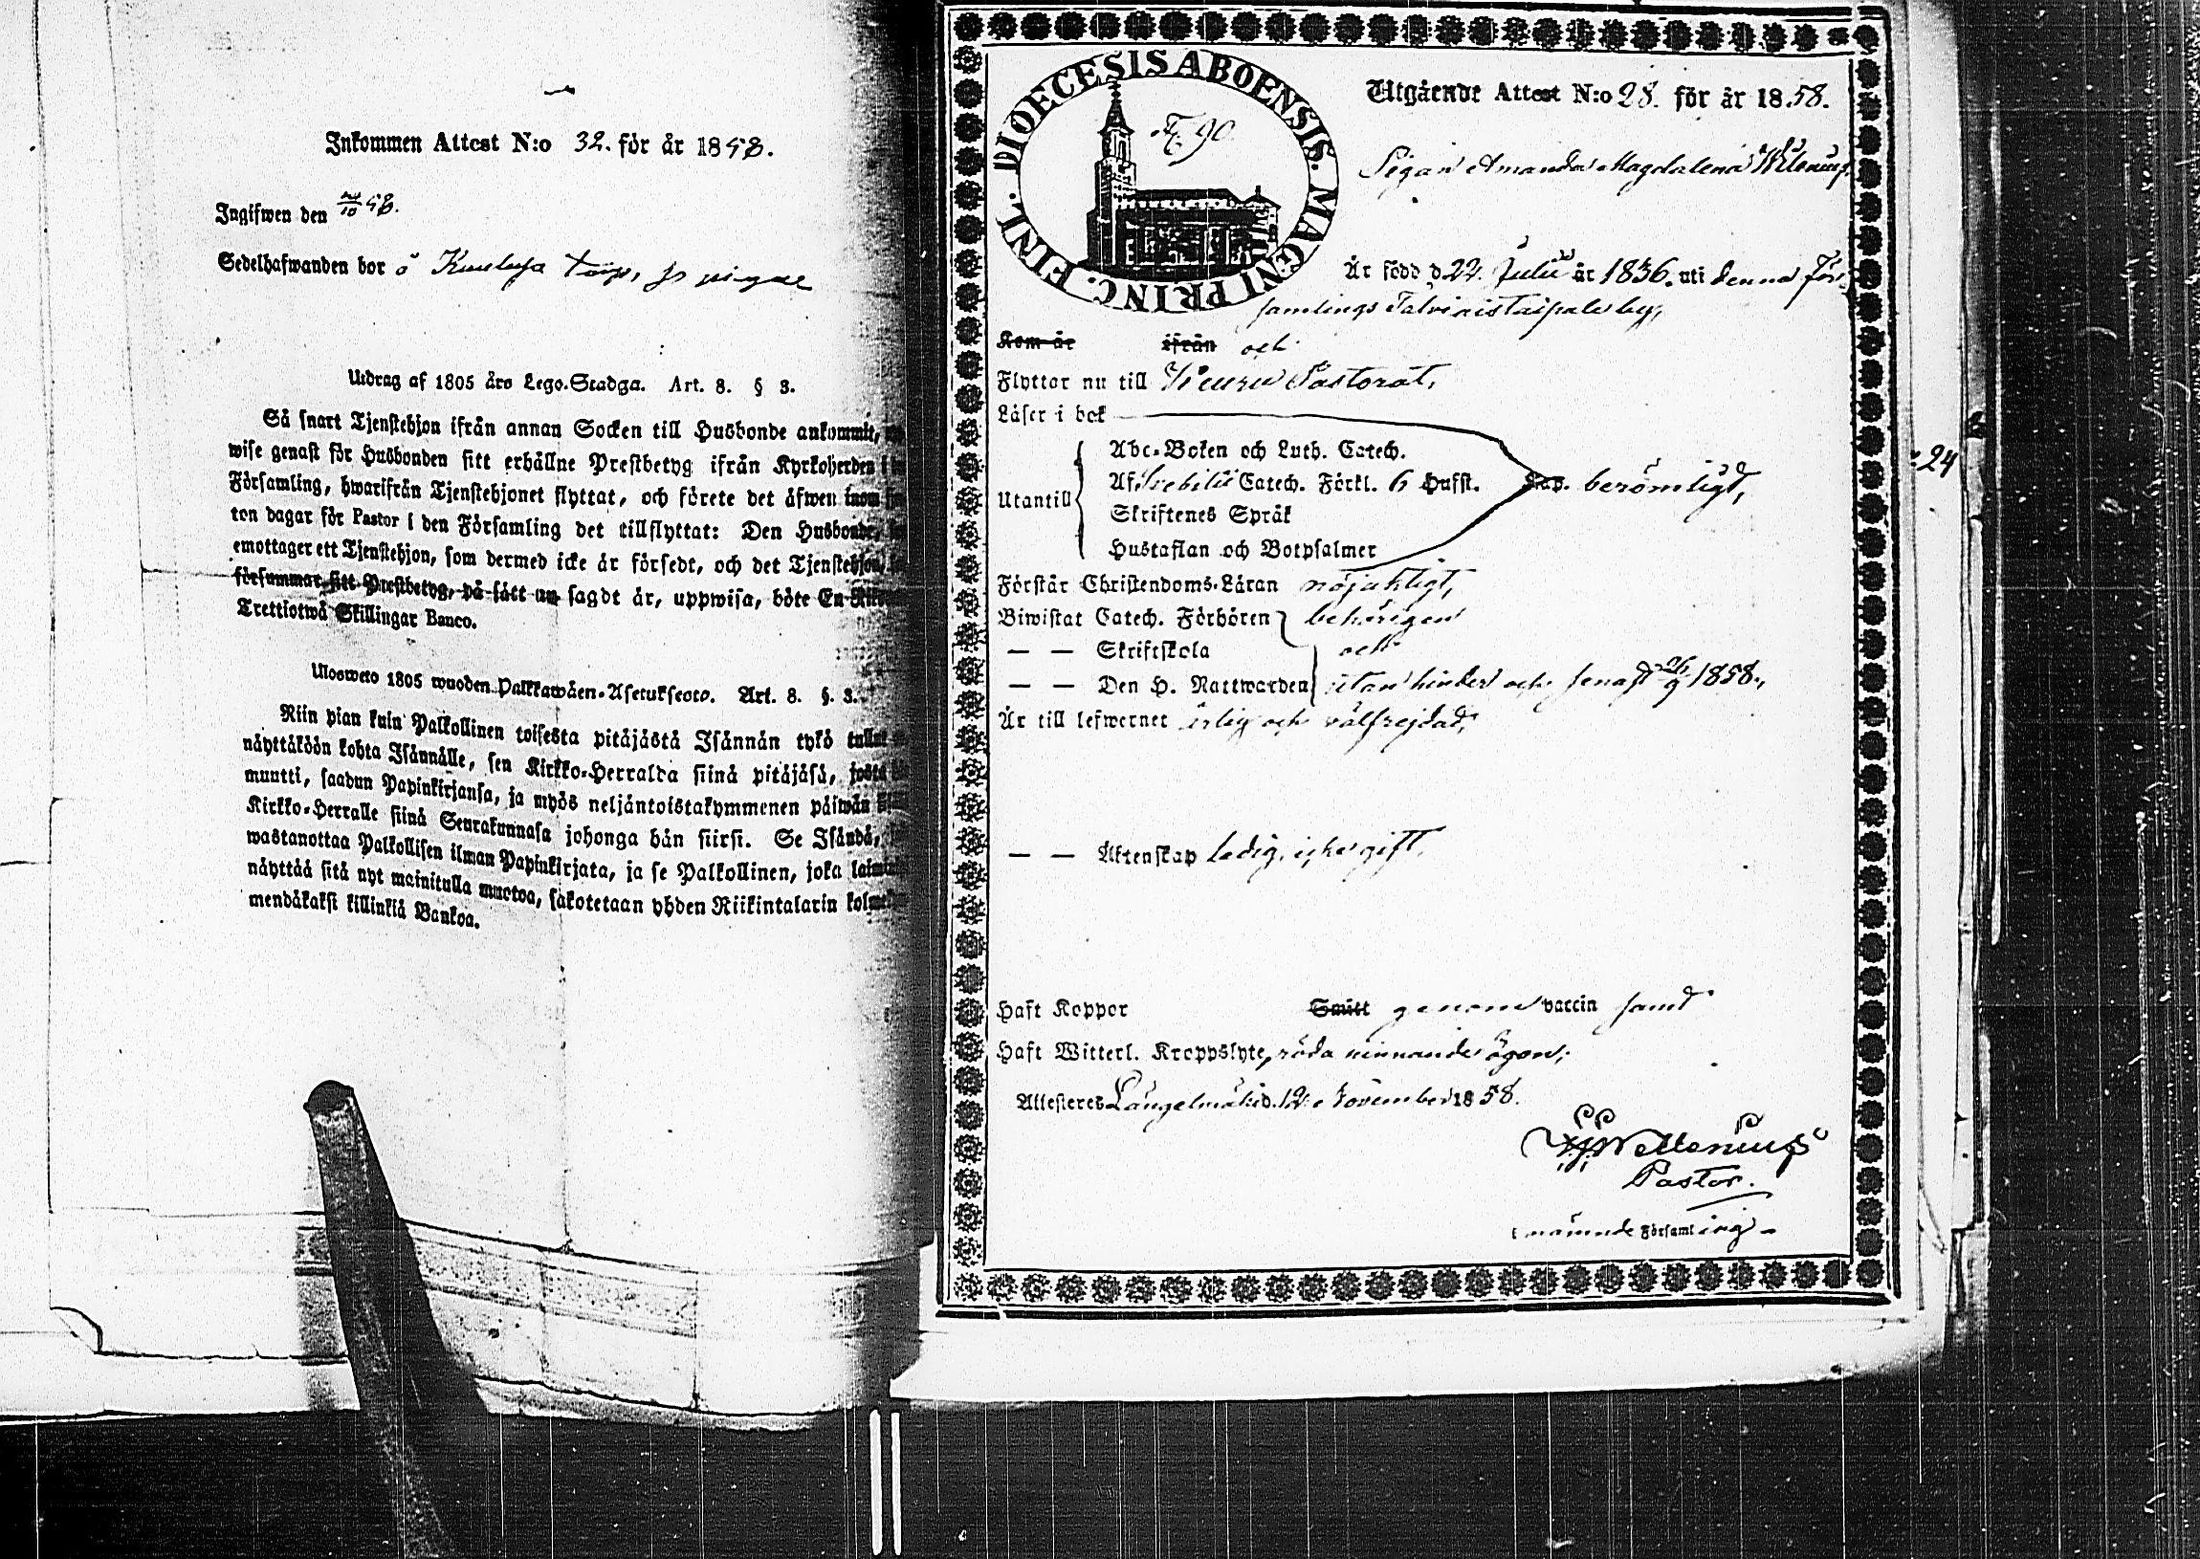 Inkommen Attest N:o 32. för år 1858.
Ingifwen den 58.
Sedelhafwanden bor å torp,
Utdrag af 1805 års Lego-Stadga. Art. 8. § 3.
Så snart Tjenstehjon ifrån annan Socken till Husbonde ankommit,
wise genast för Husbonden sitt erhållne Prestbetyg ifrån Kyrkoherden i
Församling, hwarifrån Tjenstehjonet flyttat, och förete det äfwen inom
ton dagar för Pastor i den Församling det tillflyttat: Den Husbonde,
emottager ett Tjenstehjon, som dermed icke är försedt, och det Tjenstehjon,
försummar sitt Prestbetyg, på sätt nu sagdt är, uppwisa, böte En
Trettiotwå Skillingar Banco.
Ulosweto 1805 wuoden Palkkawäen-Asetuksesta. Art. 8. §. 3.
Niin pian kuin Palkollinen toisesta pitäjästä Isännän tykö tullut
näyttäköön kohta Isännälle, sen Kirkko-Herralda siinä pitäjäsä, josta
muutti, saadun Papinkirjansa, ja myös neljäntoistakymmenen päiwän
Kirkko-Herralle siinä Seurakunnasa johonga hän siirsi. Se Isändä,
wastanottaa Palkollisen ilman Papinkirjata, ja se Palkollinen, joka
näyttää sitä nyt mainitulla muotoa, sakotetaan yhden Riikintalarin
mendäkaksi killinkiä Bankoa.
DIOECESIS ABOENSIS. MAGNI PRINC. FINL.
90.
Utgående Attest N:o 28. för år 1858.
Pigan Amanda Magdalena
Är född d. 22. Julii år 1836. uti denna För-
samlings Talviaistaipale by,
Kom år ifrån och
Flyttar nu till Keuru Pastorat,
Läser i bok
Abc-Boken och Luth. Catech.
Utantill Af Svebilii Catech. Förkl. 6 Hufst. Kap. berömligt,
Skriftenes Språk
Hustaflan och Botpsalmer
Förstår Christendoms-Läran nöjaktigt,
Biwistat Catech. Förhören behörigen
— — Skriftskola och
— — Den H. Nattwarden utan hinder och senast 26/9 1858.,
Är till lefwernet ärlig och välfrejdad,
— — Äktenskap ledig, icke gift.
Haft Koppor Smitt genom vaccin samt
Haft Witterl. Kroppslyte, röda rinnande ögon,
Attesteres Längelmäki d. 12. November 1858.
Pastor.
i nämnde Församling —
24